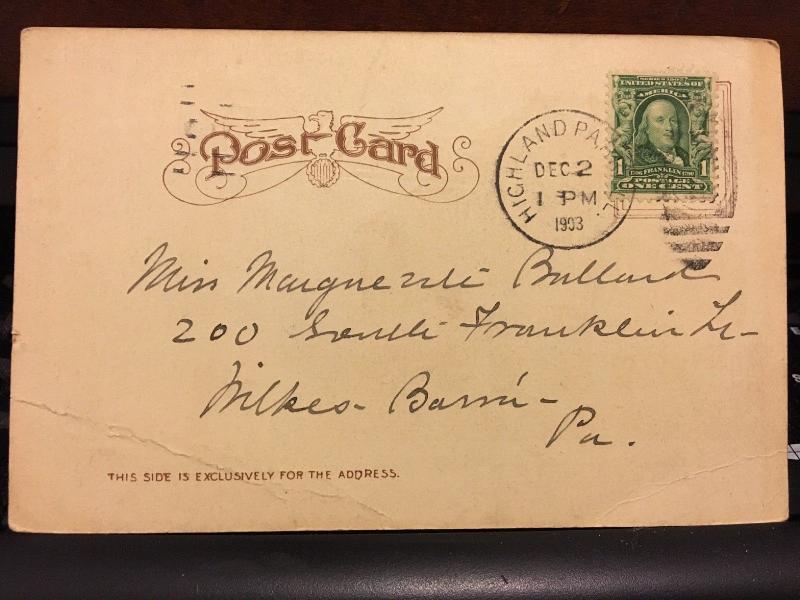 SERIES 1902
UNITED STATES OF
AMERICA
1 FRANKLIN 1
POSTAGE
ONE CENT
Post Card
HIGHLAND PARK ILL.
DEC 2
1 PM
1903
Miss Marguerite Bullard
200 South Franklin St-
Wilkes-Barré-
Pa.
THIS SIDE IS EXCLUSIVELY FOR THE ADDRESS.